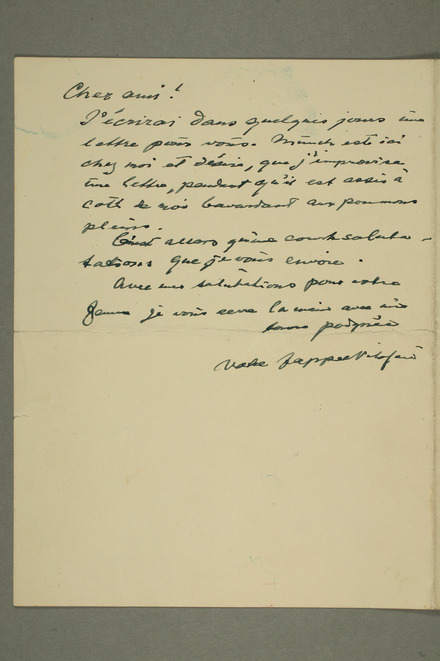 Cher ami!
J'écrirai dans quelques jours une
lettre pour vous. Munch est ici
chez moi et désire, que j'improvise
une lettre, pendant qu'il est assis à
coté de moi bavardant aux poumons
pleins.
alors qu'une courte saluta-
tations que je vous envoie.
Avec mes salutations pour votre
je vous serre la main avec une
bonne poignée
Votre